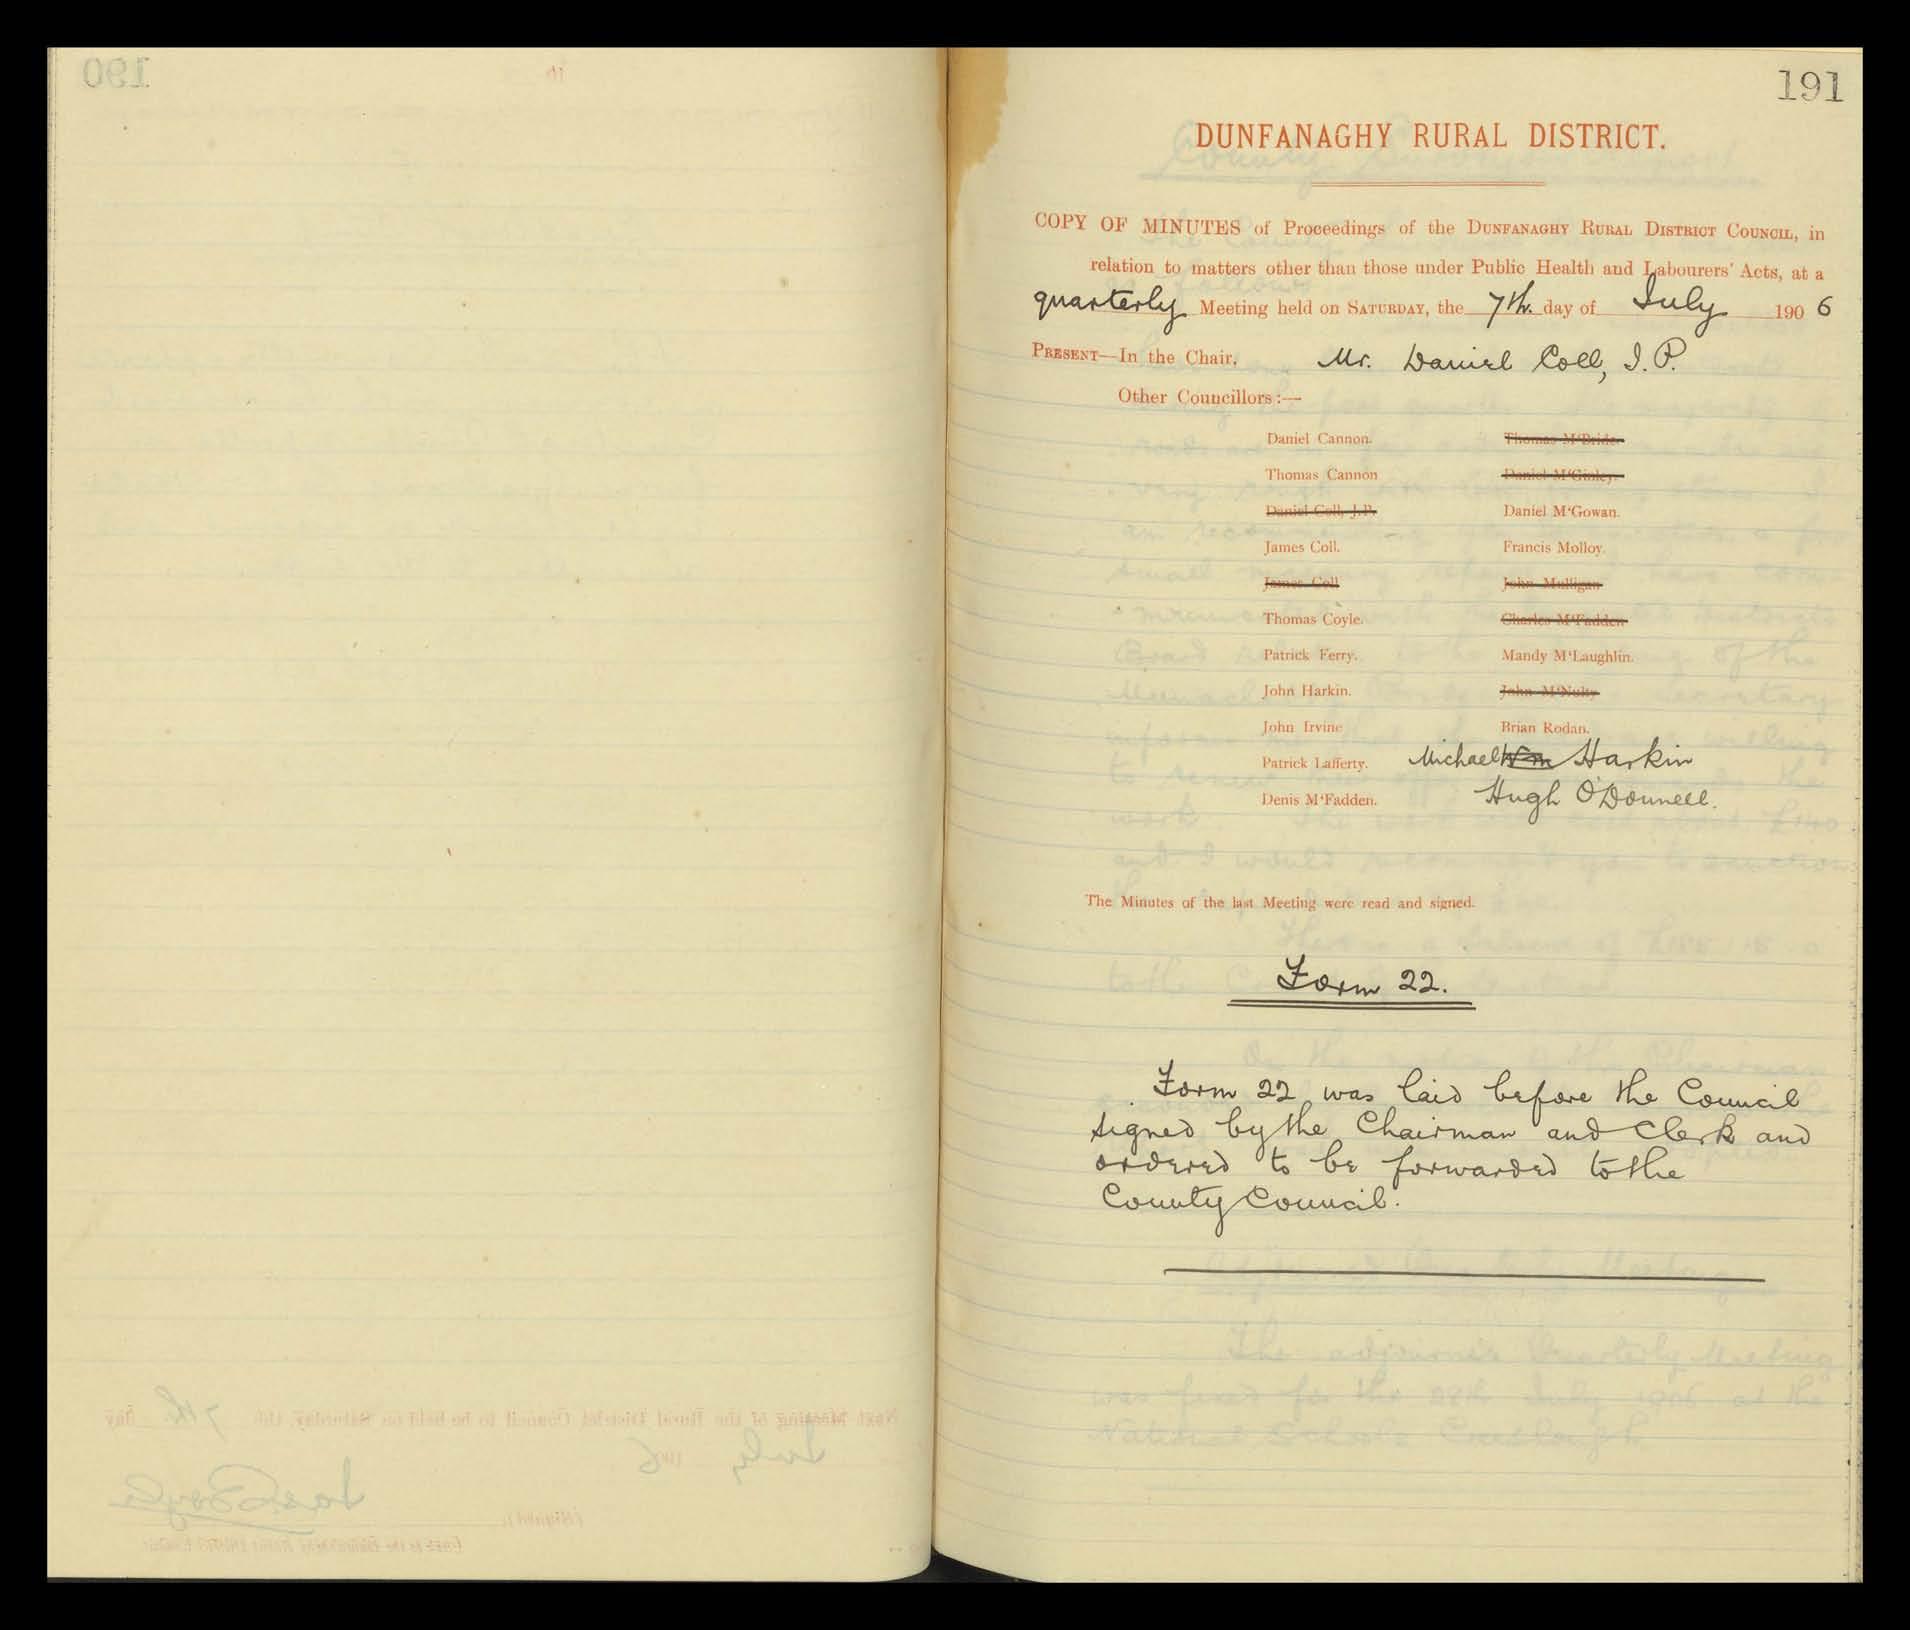 191
DUNFANAGHY RURAL DISTRICT.
COPY OF MINUTES of Proceedings of the DUNFANAGHY RURAL DISTRICT COUNCIL, in
relation to matters other than those under Public Health and Labourers' Acts, at a
quarterly Meeting held on SATURDAY, the 7th. day of July 1906
PRESENT—In the Chair, Mr. Daniel Coll, J.P.
Other Councillors:—
Daniel Cannon. Thomas M'Bride.
Thomas Cannon Daniel M'Ginley.
Daniel Coll, J.P. Daniel M'Gowan.
James Coll. Francis Molloy.
James Coll John Mulligan
Thomas Coyle. Charles M'Fadden
Patrick Ferry. Mandy M'Laughlin.
John Harkin. John M'Nulty
John Irvine Brian Rodan.
Patrick Lafferty. Michael Wm Harkin
Denis M'Fadden. Hugh O'Donnell.
The Minutes of the last Meeting were read and signed.
Form 22.
Form 22 was laid before the Council
signed by the Chairman and Clerk and
ordered to be forwarded to the
County Council.